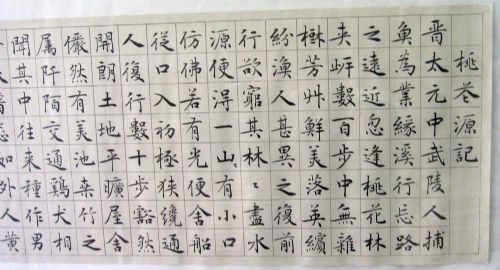 桃花源記
晉太元中武陵人捕
魚為業緣溪行忘路
之遠近忽逢桃花林
夾岸數百步中無雜
樹芳艸鮮美落英繽
紛漁人甚異之復前
行欲窮其林〻盡水
源便得一山〻有小口
仿佛若有光便舍船
從口入初極狹纔通
人復行數十步豁然
開朗土地平曠屋舍
儼然有美池桑竹之
属阡陌交通鷄犬相
聞其中往來種作男
著悉如外人黃